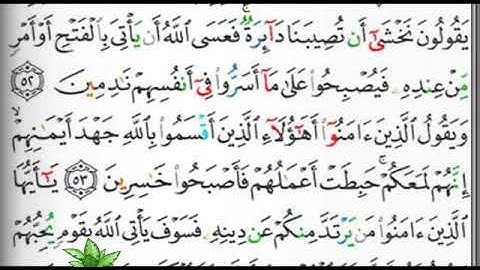 يَقُولُونَ نَخْشَىٰٓ أَن تُصِيبَنَا دَآئِرَةٌ ۚ فَعَسَى ٱللَّهُ أَن يَأْتِىَ بِٱلْفَتْحِ أَوْ أَمْرٍ
مِّنْ عِندِهِۦ فَيُصْبِحُوا۟ عَلَىٰ مَآ أَسَرُّوا۟ فِىٓ أَنفُسِهِمْ نَـٰدِمِينَ ٥٢
وَيَقُولُ ٱلَّذِينَ ءَامَنُوٓا۟ أَهَـٰٓؤُلَآءِ ٱلَّذِينَ أَقْسَمُوا۟ بِٱللَّهِ جَهْدَ أَيْمَـٰنِهِمْ ۙ
إِنَّهُمْ لَمَعَكُمْ ۚ حَبِطَتْ أَعْمَـٰلُهُمْ فَأَصْبَحُوا۟ خَـٰسِرِينَ ٥٣ يَـٰٓأَيُّهَا
ٱلَّذِينَ ءَامَنُوا۟ مَن يَرْتَدَّ مِنكُمْ عَن دِينِهِۦ فَسَوْفَ يَأْتِى ٱللَّهُ بِقَوْمٍ يُحِبُّهُمْ